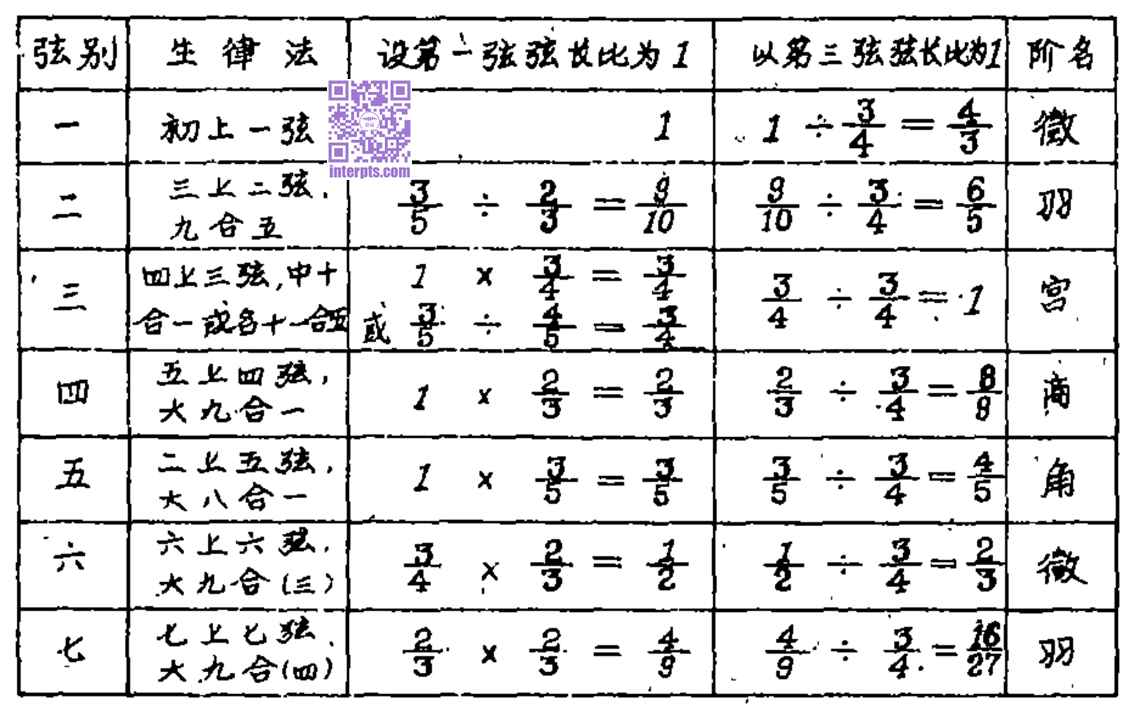 弦别 生律法 设第一弦弦长比为1 以第三弦弦长比为1 阶名
一 初上一弦 1 1 ÷ 3/4 = 4/3 徵
二 三上二弦, 九合五 3/5 ÷ 2/3 = 9/10 9/10 ÷ 3/4 = 6/5 羽
三 四上三弦,中十 1 × 3/4 = 3/4 3/4 ÷ 3/4 = 1 宫
合一或名十一合五 或 3/5 ÷ 4/5 = 3/4
四 五上四弦, 大九合一 1 × 2/3 = 2/3 2/3 ÷ 3/4 = 8/9 商
五 二上五弦, 大八合一 1 × 3/5 = 3/5 3/5 ÷ 3/4 = 4/5 角
六 六上六弦, 大九合(三) 3/4 × 2/3 = 1/2 1/2 ÷ 3/4 = 2/3 徵
七 七上七弦, 大九合(四) 2/3 × 2/3 = 4/9 4/9 ÷ 3/4 = 16/27 羽
interpts.com